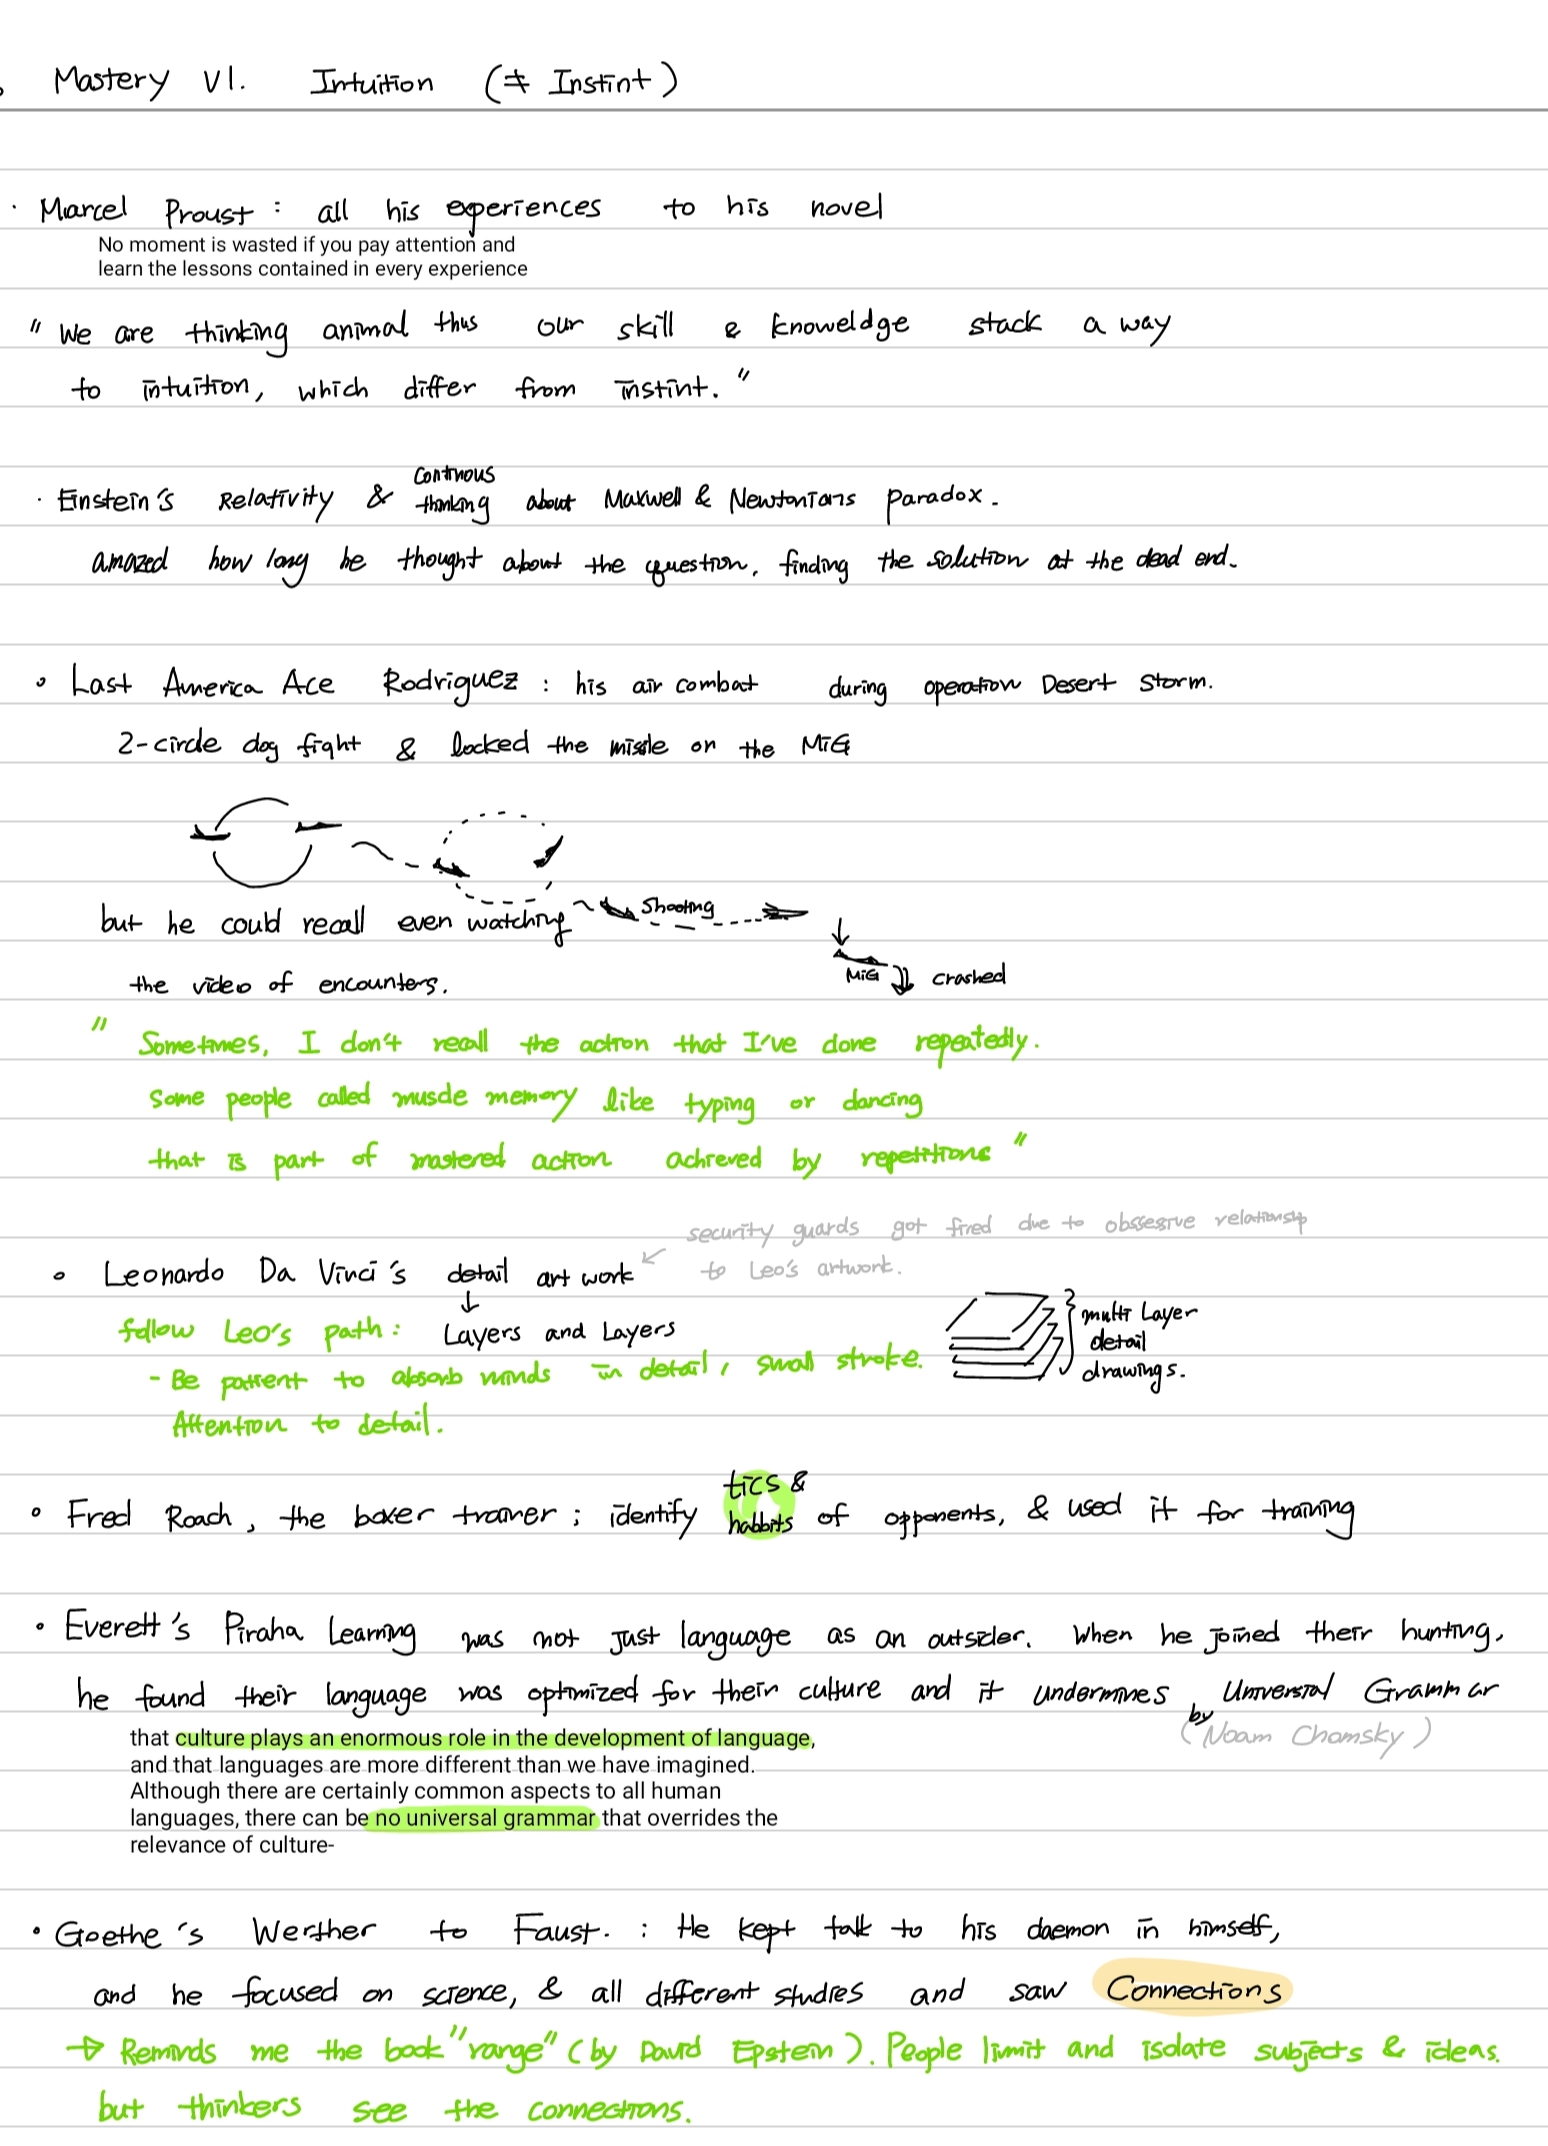 Mastery VI. Intuition (≠ Instint)
· Marcel Proust : all his experiences to his novel
No moment is wasted if you pay attention and
learn the lessons contained in every experience
" We are thinking animal thus our skill & knoweldge stack a way
to intuition, which differ from instint. "
· Einstein's Relativity & continous thinking about Maxwell & Newtonians Paradox.
amazed how long he thought about the question, finding the solution at the dead end.
• Last America Ace Rodriguez : his air combat during operation Desert Storm.
2-circle dog fight & locked the missle on the MiG
but he could recall even watching
shooting
the video of encounters.
MiG crashed
" Sometimes, I don't recall the action that I've done repeatedly.
some people called muscle memory like typing or dancing
that is part of mastered action achieved by repetitions "
security guards got fired due to obssesive relationship
to Leo's artwork.
• Leonardo Da Vinci's detail art work
follow Leo's path : Layers and Layers
multi Layer
detail
drawings.
- Be patient to absorb minds in detail, small stroke.
Attention to detail.
• Fred Roach, the boxer trainer ; identify tics & habbits of opponents, & used it for training
• Everett's Piraha Learning was not just language as an outsider. When he joined their hunting,
he found their language was optimized for their culture and it undermines Universial Grammar
by (Noam Chomsky)
that culture plays an enormous role in the development of language,
and that languages are more different than we have imagined.
Although there are certainly common aspects to all human
languages, there can be no universal grammar that overrides the
relevance of culture-
• Goethe's Werther to Faust. : He kept talk to his daemon in himself,
and he focused on science, & all different studies and saw Connections
→ Reminds me the book "range" (by David Epstein). People limit and isolate subjects & ideas.
but thinkers see the connections.